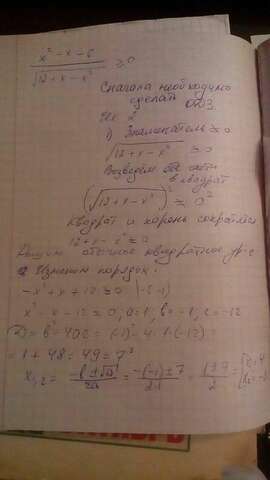 x² - x - 6 / √12 + x - x² ≥ 0
Сначала необходимо
сделать ОДЗ.
Их 2
1) Знаменатель ≥ 0
√12 + x - x² ≥ 0
Возведем обе части
в квадрат
(√12 + x - x²)² ≥ 0²
Квадрат и корень сократился
12 + x - x² ≥ 0
Решим обычное квадратное ур-е
Изменим порядок:
-x² + x + 12 ≥ 0 |·(-1)
x² - x - 12 ≤ 0; a = 1, b = -1, c = -12
D = b² - 4ac = (-1)² - 4·1·(-12) =
= 1 + 48 = 49 = 7²
x₁,₂ = -b ± √D / 2a = -(-1) ± 7 / 2·1 = 1 ± 7 / 2 = [x₁ = 4
x₂ = -